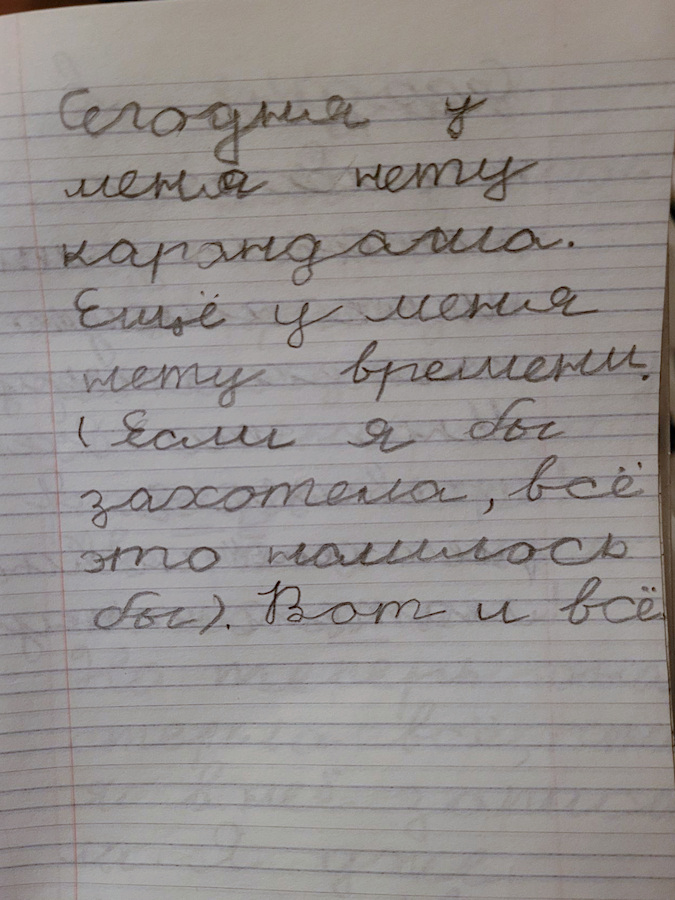 Сегодня у
меня нету
карандаша.
Ещё у меня
нету времени.
(Если я бы
захотела, всё
это помилось
бы). Вот и всё